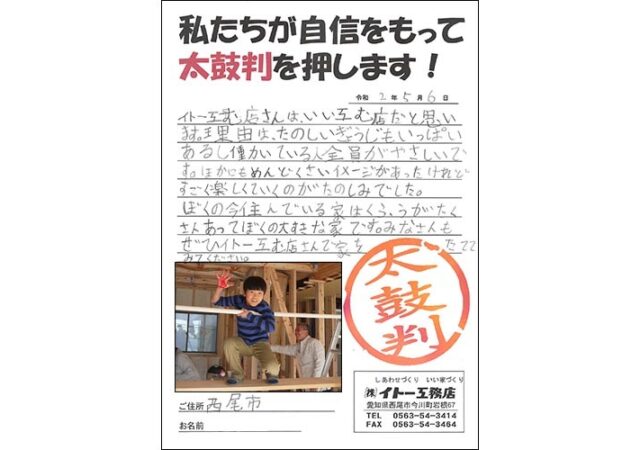 私たちが自信をもって
太鼓判を押します！
令和 2 年 5 月 6 日
イトー互む店さんは、いい互む店だと思い
ます。理由は、たのしいぎょうじもいっぱい
あるし働かいている人全員がやさしいで
す。ほかにもめんどくさいイメージがあったけれど
すごく楽しくていくのがたのしみでした。
ぼくの今住んでいる家はくふうがたく
さんあってぼくの大すきな家です。みなさんも
ぜひイトー互む店さんで家を たてて
みてください。
太鼓判
ご住所 西尾市
お名前
しあわせづくり いい家づくり
㈱イトー工務店
愛知県西尾市今川町岩根67
TEL 0563-54-3414
FAX 0563-54-3464